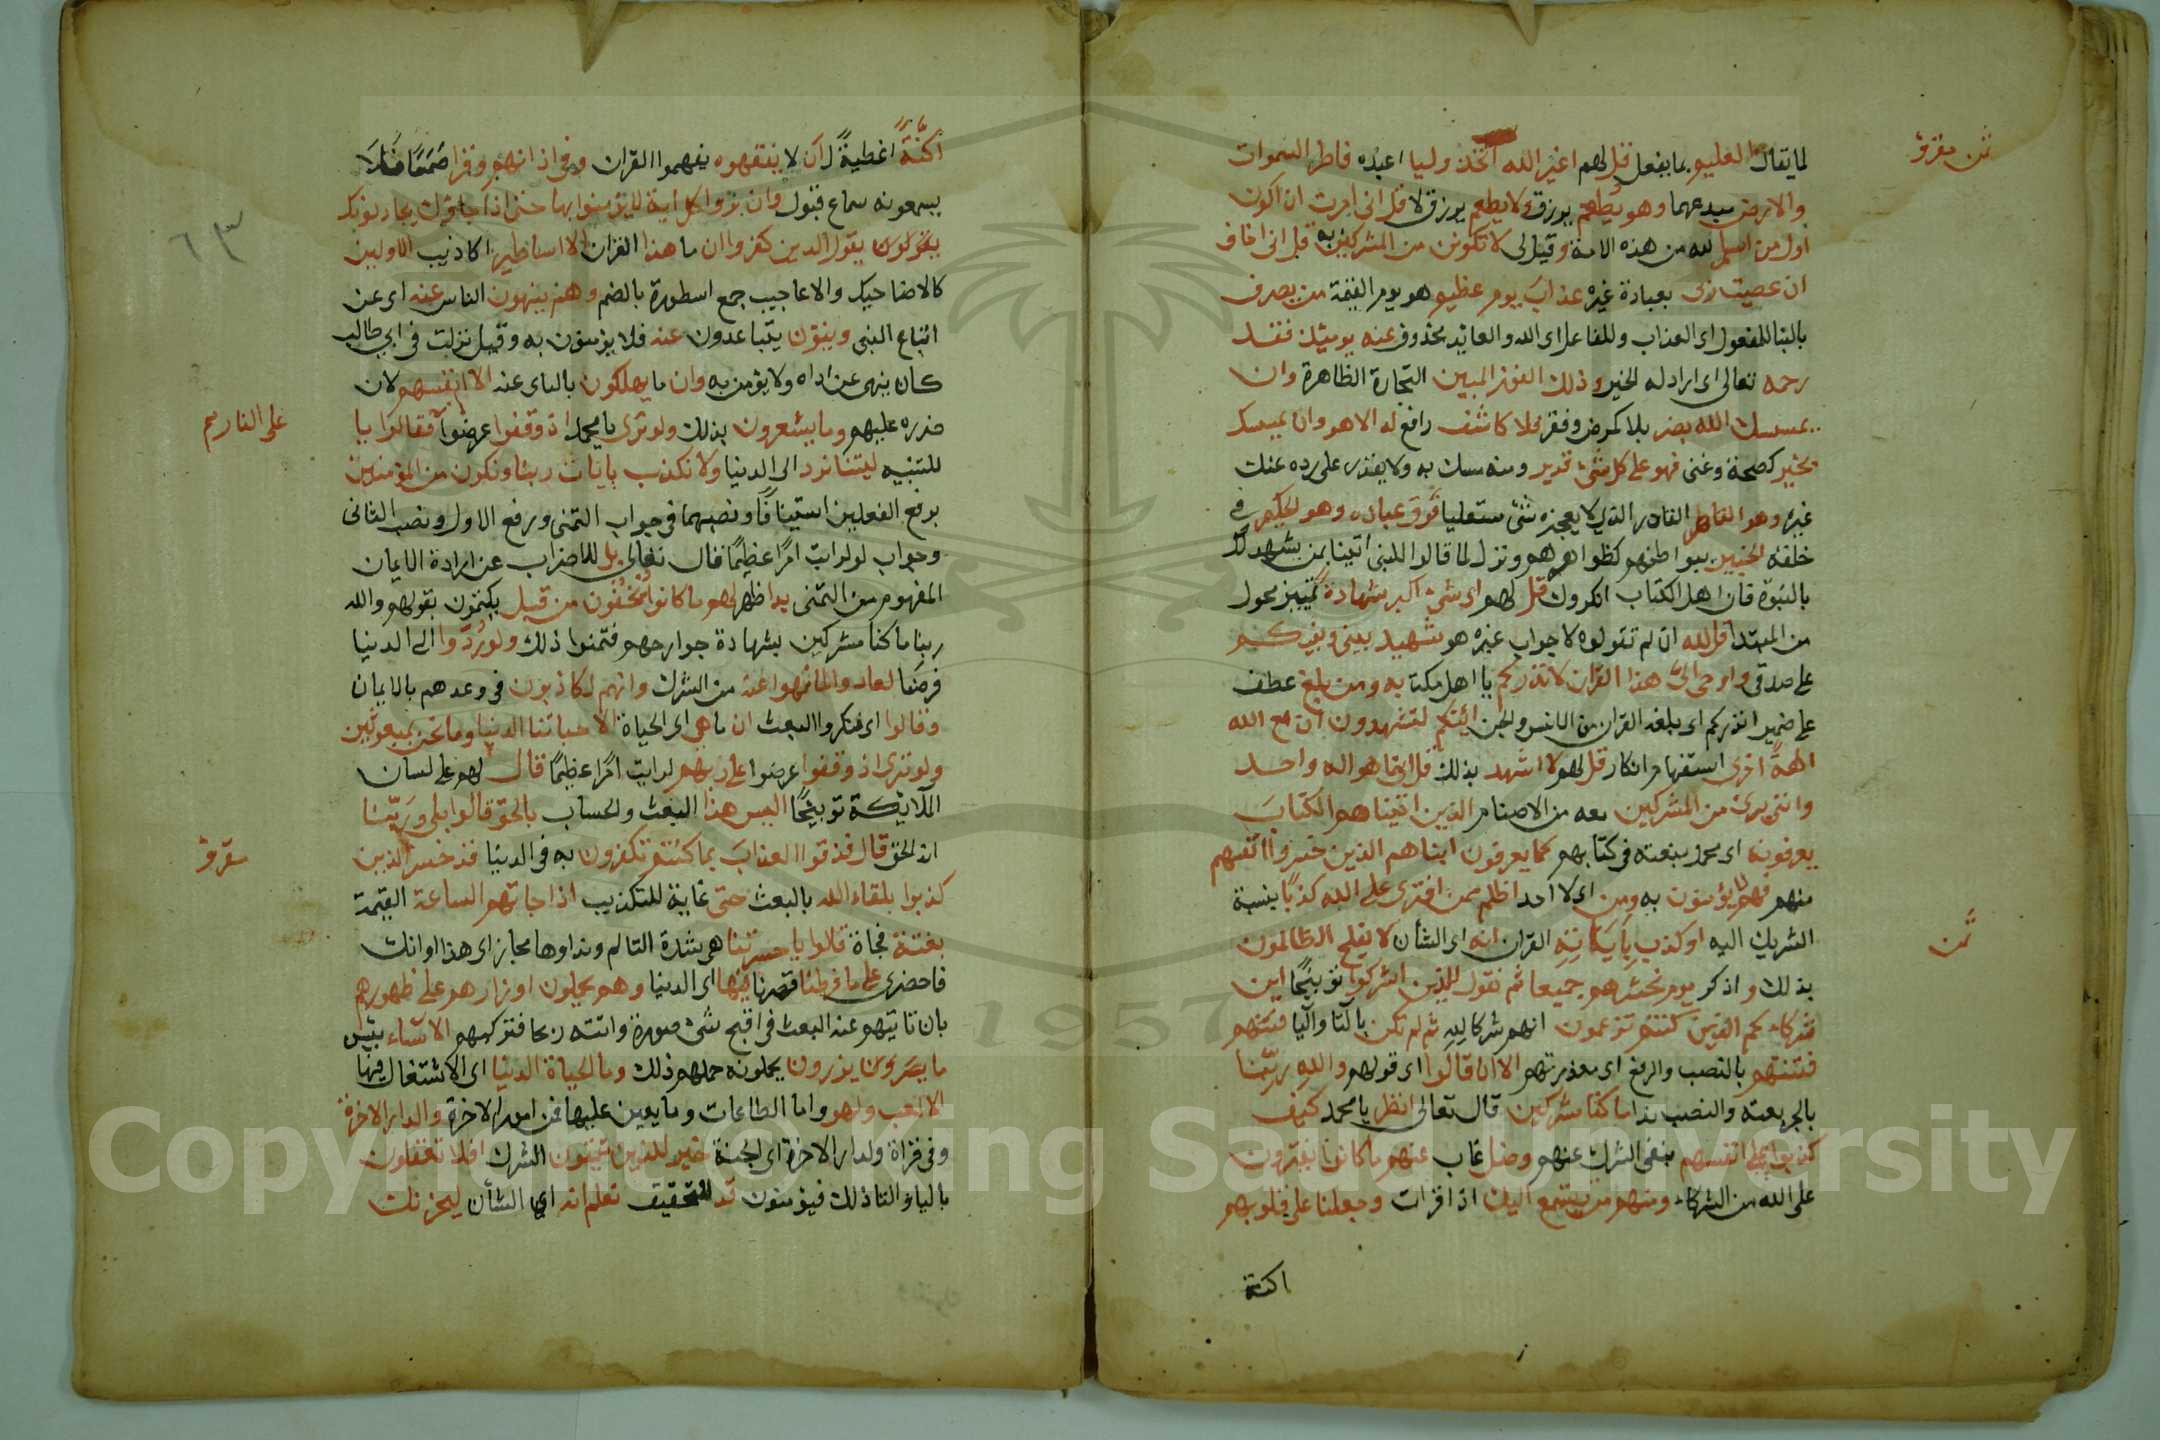 ثمن مقرؤ
لما يقال العليم بما يفعل قل لهم اغير الله اتخذ وليا اعبده فاطر السموات
والارض مبدعهما وهو يُطعم يرزق ولا يطعم يرزق لا قل انى امرت ان اكون
اول من اسلم لله من هذه الامة وقيل لى لا تكونن من المشركين به قل انى اخاف
ان عصيت ربى بعبادة غيره عذابَ يوم عظيم هو يوم القيمة من يصرف
بالبنا للمفعول اى العذاب وللفاعل اى الله والعايد محذوف عنه يومئذ فقد
رحمه تعالى اى اراد له الخير وذلك الفوز المبين النجاة الظاهرة وان
يمسسك الله بضر بلا كمرض وفقر فلا كاشف رافع له الا هو وان يمسسك
بخير كصحة وغنى فهو على كل شئ قدير ومنه مسك به ولا يقدر على رده عنك
غيره وهو القاهر القادر الذى لا يعجزه شئ مستعليا فوق عباده وهو الحكيم فى
خلقه الخبير ببواطنهم كظواهرهم ونزل لما قالوا للنبى اتينا بمن يشهد لك
بالنبوّة فان اهل الكتاب انكروك قل لهم اى شئ اكبر شهادة تمييز محول
من المبتدا قل الله ان لم تقولوه لا جواب غيره هو شهيد بينى وبينكم
على صدقى واوحى الىّ هذا القران لانذركم يا اهل مكة به ومن بلغ عطف
على ضمير انذركم اى بلغه القران من الانس والجن ائنكم لتشهدون ان مع الله
الهةً اخرى استفهام انكار قل لهم لا اشهد بذلك قل انما هو اله واحد
واننى برئ من المشركين معه من الاصنام الذين اتيناهم الكتابَ
يعرفونه اى محمد بنعته فى كتابهم كما يعرفون ابناهم الذين خسروا انفسهم
منهم فهم لا يؤمنون به ومن اى لا احد اظلم ممن افترى على الله كذبًا بنسبة
الشريك اليه او كذب بِايَاتِهِ القران انه اى الشأن لا يفلح الظالمون
ثمن
بذلك واذكر يوم نحشرهم جميعا ثم نقول للذين اشركوا توبيخًا اين
شركاءكم الذين كنتم تزعمون انهم شركا لله ثم لم تكن بالتا واليا فتنتهم
فتنتهم بالنصب والرفع اى معذرتهم الا ان قالوا اى قولهم واللهِ ربّنا
بالجر نعته والنصب ندا ما كنا مشركين قال تعالى انظر يا محمد كيف
كذبوا على انفسهم بنفى الشرك عنهم وضل غاب عنهم ما كانوا يفترون
على الله من الشركاء ومنهم من يستمع اليك اذا قرات وجعلنا على قلوبهم
اكنة
اكنّةً اغطيةً لـ ان لا يفقهوه يفهموا القران وفى اذانهم وقرا صَمَمًا فلا
يسمعونه سماع قبول وان يروا كل اية لا يؤمنوا بها حتى اذا جاؤك يجادلونك
يقولون يقول الذين كفروا ان ما هذا القران الا اساطير اكاذيب الاولين
٦٣
كالاضاحيك والاعاجيب جمع اسطورة بالضم وهم ينهون الناس عنه اى عن
اتباع النبى وينؤن يتباعدون عنه فلا يؤمنون به وقيل نزلت فى ابي طالب
كان ينهى عن اذاه ولا يؤمن به وان ما يهلكون بالناى عنه الا انفسهم لان
ضرره عليهم وما يشعرون بذلك ولو ترى يا محمد اذ وقفوا عرضوا فقالوا يا
على النار صح
للتنبيه ليتنا نرد الى الدنيا ولا نكذب بايات ربنا ونكون من المؤمنين
برفع الفعلين استينافًا ونصبهما فى جواب التمنى ورفع الاول ونصب الثانى
وجواب لو لرايت امرًا عظيمًا فال تعالى بل للاضراب عن ارادة الايمان
المفهوم من التمنى بدا ظهر لهم ما كانوا يُخْفُون من قبل يكتمون بقولهم والله
ربنا ما كنا مشركين بشهادة جوارحهم فتمنوا ذلك ولو رُدّوا الى الدنيا
فرضًا لعادوا لما نهوا عنه من الشرك وانهم لكاذبون فى وعدهم بالايمان
وقالوا اى منكروا البعث ان ما هى اى الحياة الا حياتنا الدنيا وما نحن بمبعوثين
ولو ترى اذ وقفوا عرضوا على ربهم لرايت امرًا عظيمًا قال لهم على لسان
الملايكة توبيخًا اليس هذا البعث والحساب بالحق قالوا بلى وَرَبّنا
انه لحق قال فذوقوا العذابَ بما كنتم تكفرون به فى الدنيا قد خسر الذين
مقرؤ
كذبوا بلقاء الله بالبعث حتى غاية للتكذيب اذا جاتهم الساعة القيمة
بغتة فجاة قالوا يا حسرتنا هى شدة التالم ونداوها مجاز اى هذا اوانك
فاحضرى على ما فرطنا قصرنا فيها اى الدنيا وهم يحملون اوزارهم على ظهورهم
بان تاتيهم عند البعث فى اقبح شئ صورة وانتنه ريحا فتركبهم الا ساء بئس
ما يزرون يزرون يحملونه حملهم ذلك وما الحياة الدنيا اى الاشتغال فيها
الا لعب ولهو واما الطاعات وما يعين عليها فمن امور الاخرة والدار الاخرة
وفى قراة ولدار الاخرة اى الجنة خير للذين يتقون الشرك افلا تعقلون
بالياء والتا ذلك فيؤمنون قد للتحقيق نعلم انه اى الشأن ليحزنك